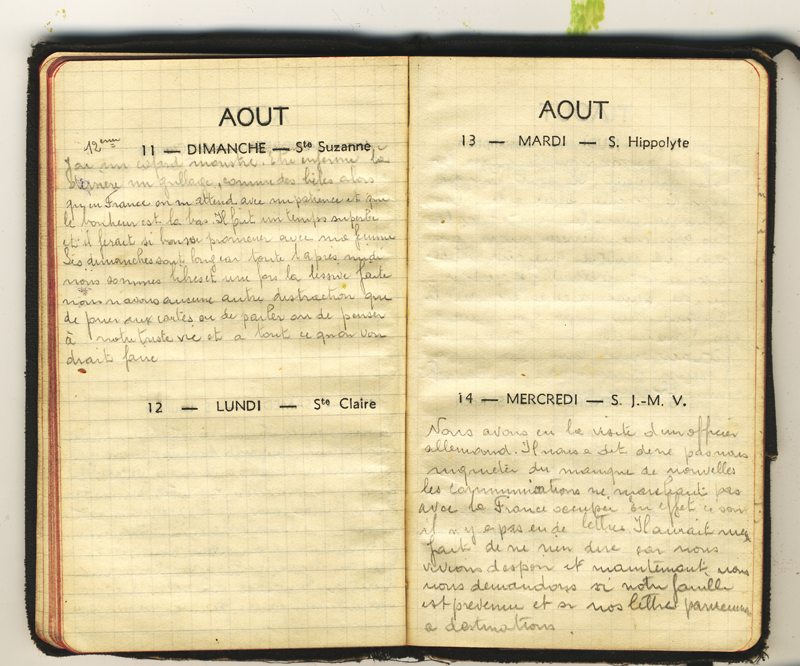 AOUT
12eme
11 — DIMANCHE — Ste Suzanne
J'ai un cafard monstre. Etre enferme la
derriere un grillage, comme des bêtes alors
qu'en France on m attend avec impatience et que
le bonheur est la bas. Il fait un temps superbe
et il ferait si bon se promener avec ma femme
Les dimanches sont long car toute l apres midi
nous sommes libres et une fois la lessive faite
nous n avons aucune autre distraction que
de jouer aux cartes ou de parler ou de penser
à notre triste vie et a tout ce qu on vou
drait faire
12 — LUNDI — Ste Claire
AOUT
13 — MARDI — S. Hippolyte
14 — MERCREDI — S. J.-M. V.
Nous avons eu la visite d un officier
allemand. Il nous a dit de ne pas nous
inquieter du manque de nouvelles
les communications ne marchant pas
avec la France occupee En effet ce soir
il n y a pas eu de lettres Il aurait mieux
fait de ne rien dire car nous
vivions d espoir et maintenant nous
nous demandons si notre famille
est prevenue et si nos lettres parviennent
a destinations.